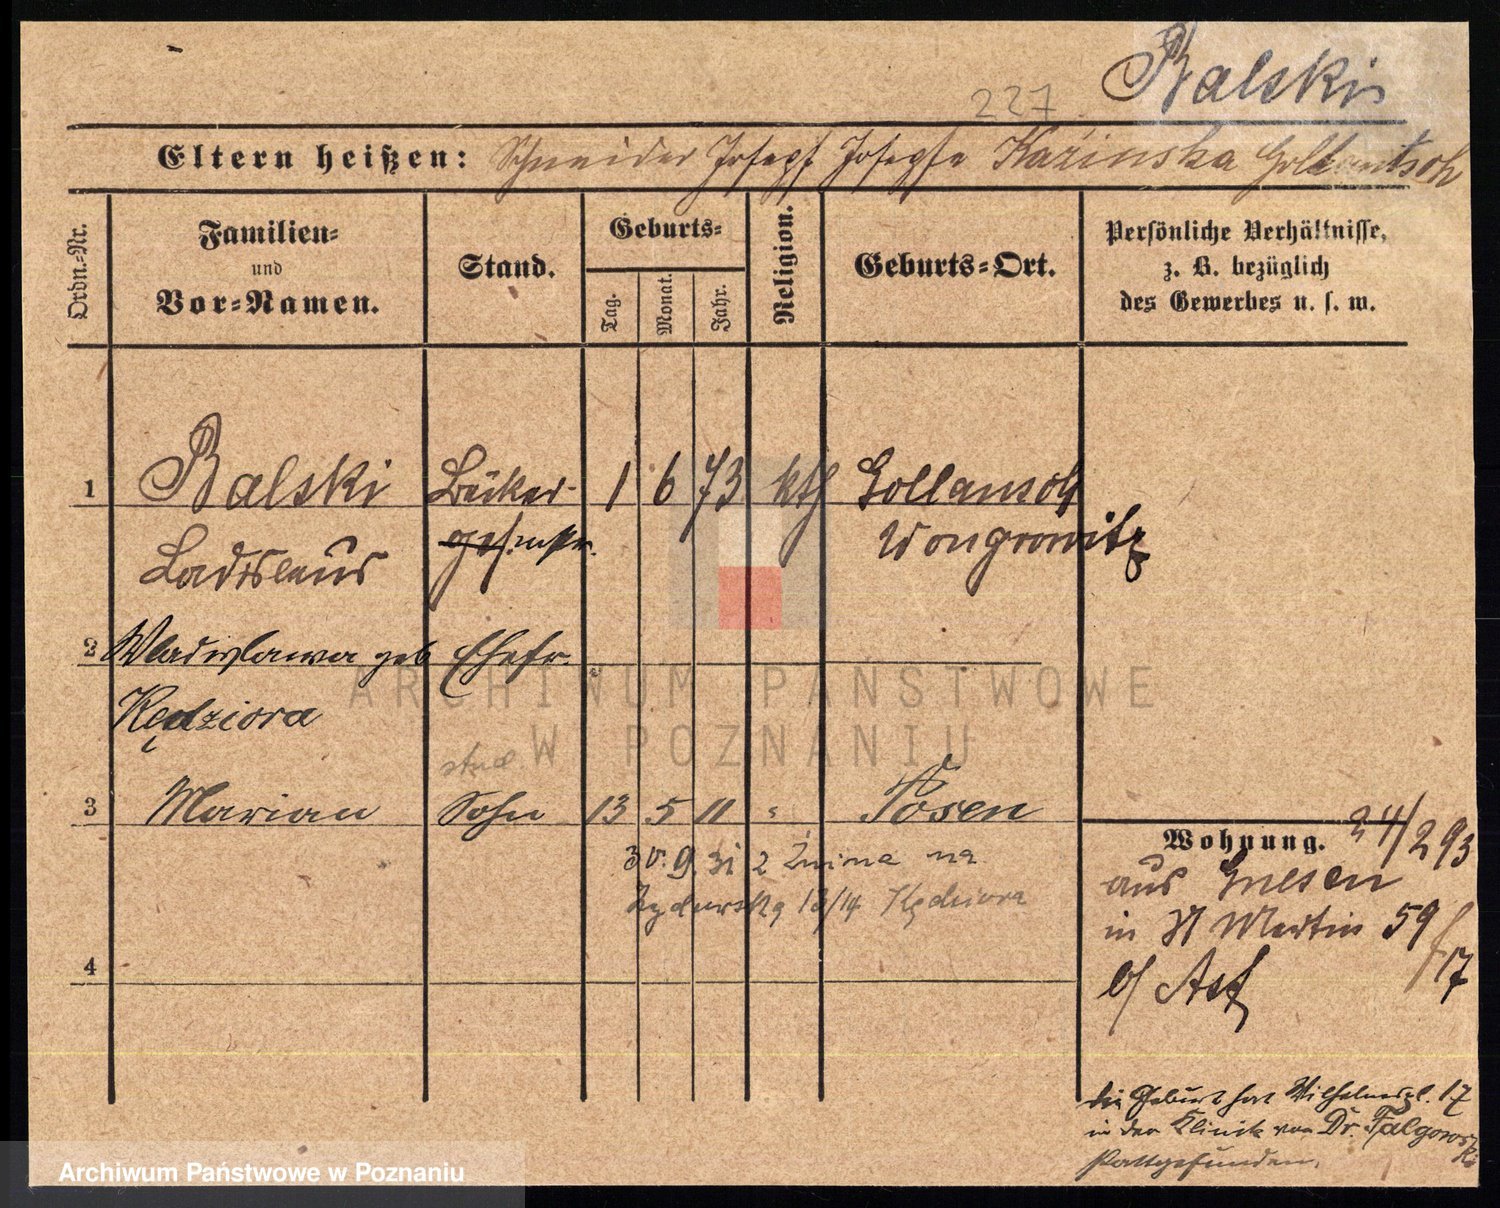 Balski
227
Eltern heißen: Schneider Josef Josepha Kazinska Gollantsch
Ordn.-Nr.
Familien-
und
Vor-Namen.
Stand.
Geburts-
Tag.
Monat.
Jahr.
Religion.
Geburts-Ort.
Persönliche Verhältnisse,
z. B. bezüglich
des Gewerbes u. s. w.
1 Balski Bäcker- 1 6 73 kth Gollansch
Ladislaus Wongrowitz
2 Wladislawa geb Ehefr.
Kędziora
stud.
3 Marian Sohn 13 5 11 " Posen
30. 9. 31 z Żnina na
13/14 Kędziora
4
Wohnung. 24/2 93
aus Gnesen
in St Martin 59
b/ 17
die Geburt hat Wilhelmspl. 17
in der Klinik von Dr. Palgowski
stattgefunden.
ARCHIWUM PAŃSTWOWE
W POZNANIU
Archiwum Państwowe w Poznaniu